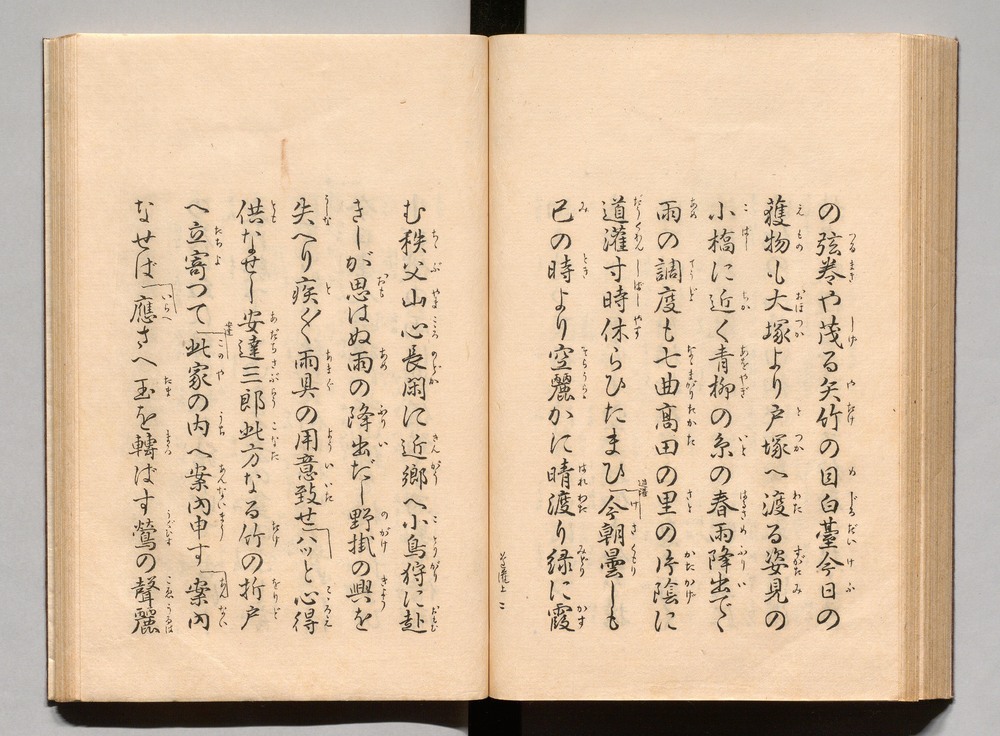 の弦巻や茂る矢竹の目白臺今日の
獲物も大塚より戸塚へ渡る姿見の
小橋に近く青柳の糸の春雨降出て
雨の調度も七曲髙田の里の片陰に
道灌寸時休らひたまひ「今朝曇しも
巳の時より空麗かに晴渡り緑に霞
む秩父山心長閑に近郷へ小鳥狩に赴
きしが思はぬ雨の降出だし野掛の興を
失へり疾〱雨具の用意致せ「ハッと心得
供なせし安達三郎此方なる竹の折戸
へ立寄つて「此家の内へ案内申す「案内
なせば「應さへ玉を轉ばす鶯の聲麗